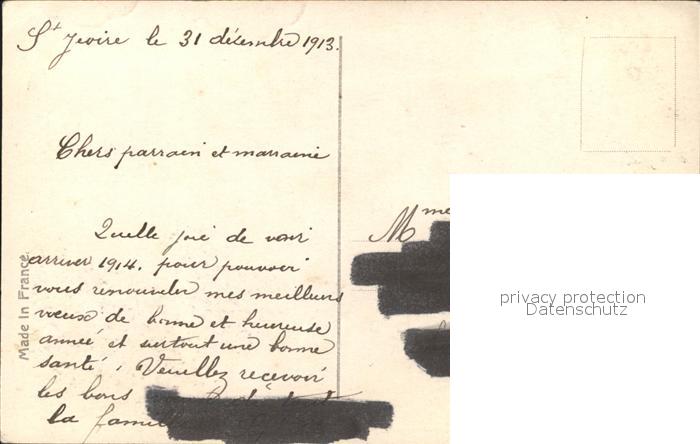 St Jeoire le 31 décembre 1913.
Chers parrain et marraine
Quelle joie de voir
arriver 1914. pour pouvoir
vous renouveler mes meilleurs
voeux de bonne et heureuse
année et surtout une bonne
santé, Veuillez recevoir
les bons
la famil
Mme
Made In France.
privacy protection
Datenschutz